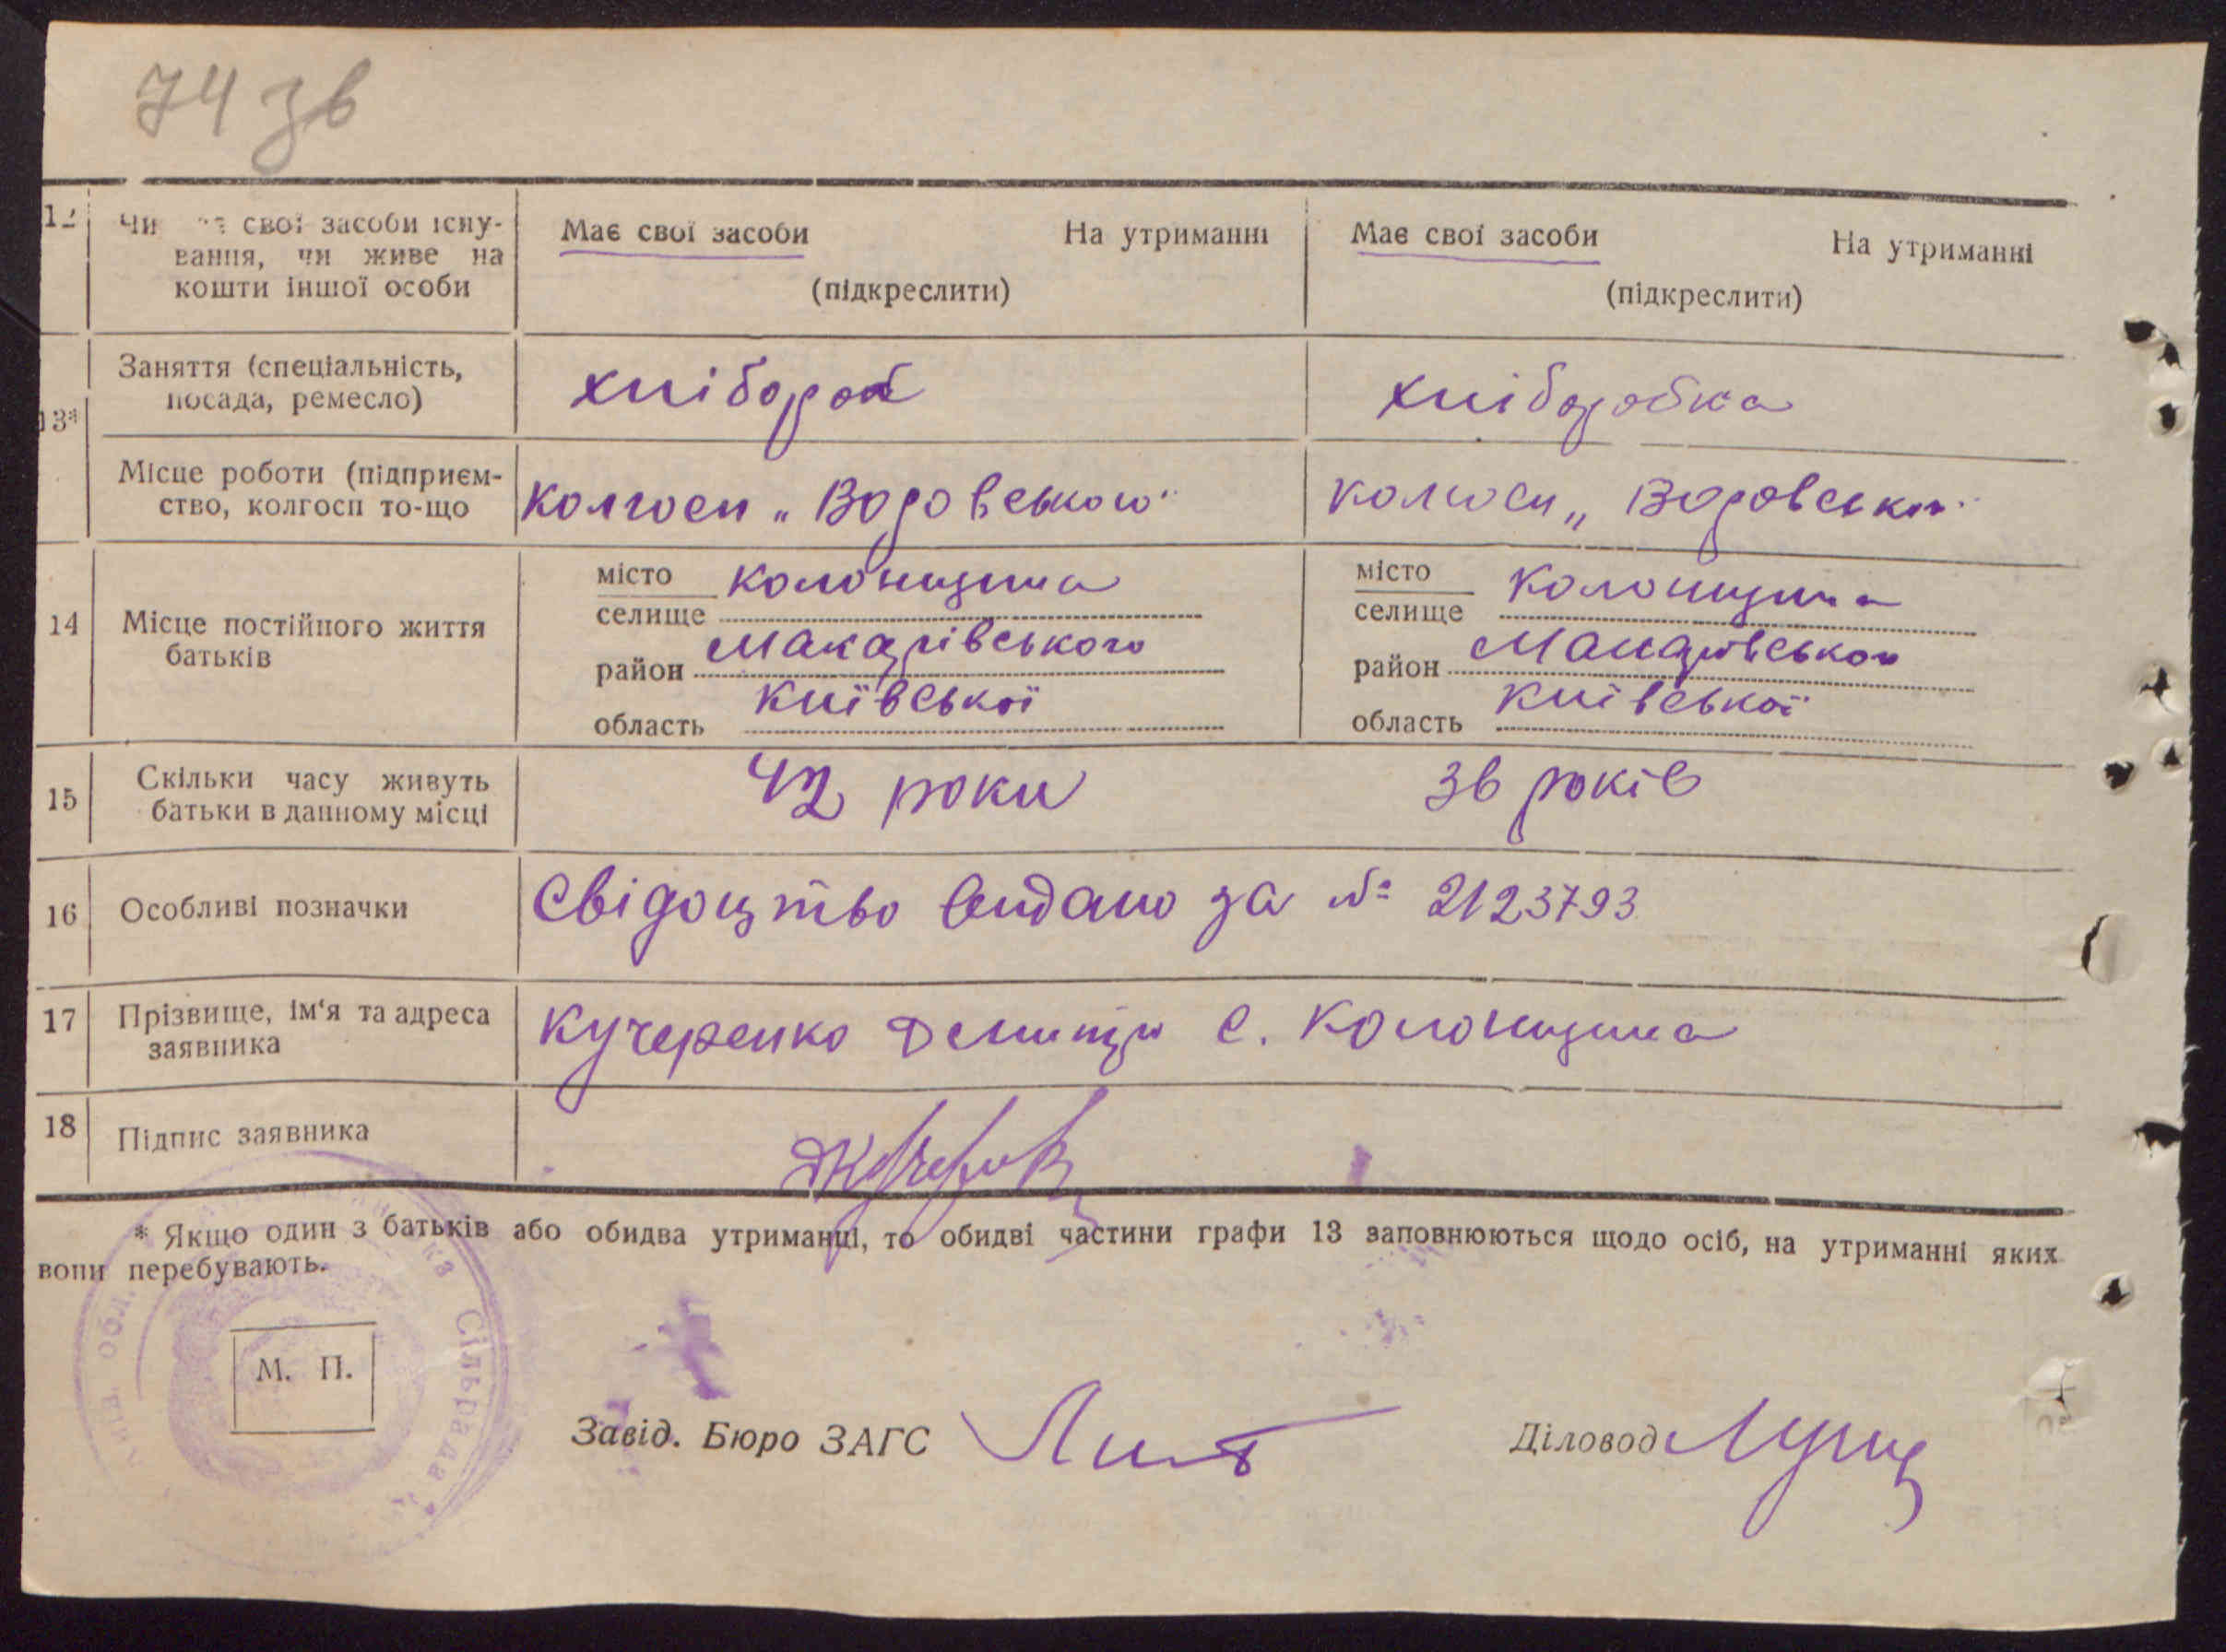 74 зв
12 Чи має свої засоби існу-
вання, чи живе на
кошти іншої особи
Має свої засоби На утриманні
(підкреслити)
Має свої засоби На утриманні
(підкреслити)
13*
Заняття (спеціальність,
посада, ремесло)
хлібороб
хліборобка
Місце роботи (підприєм-
ство, колгосп то-що
Колгосп „Воровського"
колгосп „Воровського"
14 Місце постійного життя
батьків
місто
селище Колонщина
район Макарівського
область Київської
місто
селище Колонщина
район Макарівського
область Київської
15 Скільки часу живуть
батьки в данному місці
42 роки
36 років
16 Особливі позначки
Свідоцтво видано за № 2123793
17 Прізвище, ім'я та адреса
заявника
Кучеренко с. Колонщина
18 Підпис заявника
* Якщо один з батьків або обидва утриманці, то обидві частини графи 13 заповнюються щодо осіб, на утриманні яких
вони перебувають.
обл. Сільрада
М. П.
Завід. Бюро ЗАГС
Діловод